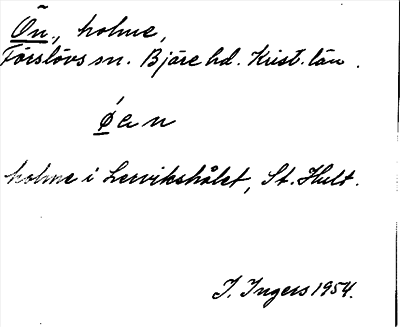 Ön, holme,
Förslövs sn. Bjäre hd. Krist. län.
ǿen
holme i Lervikshålet, St. Hult.
I. Ingers 1954.